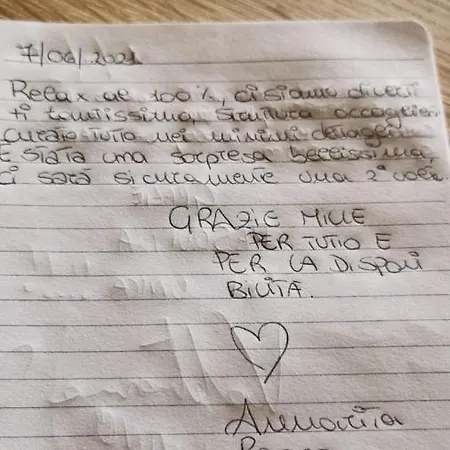 7/06/2021
Relax al 100%, ci siamo diverti
ti tantissimo, struttura accoglien
curato tutto nei minimi dettagli
È stata una sorpresa bellissima,
ci sarà sicuramente una 2ª volta
GRAZIE MILLE
PER TUTTO E
PER LA DISPONI
BILITÀ.
Annarita